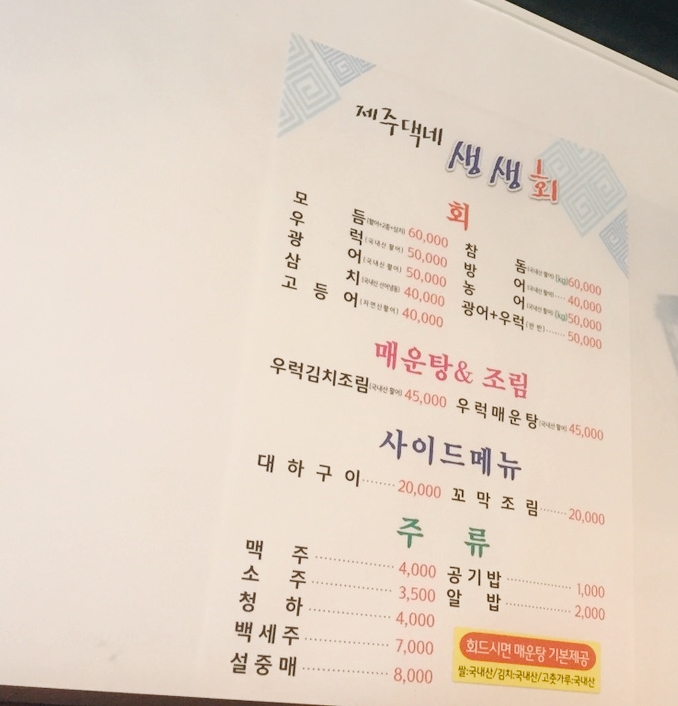 제주댁네
생생회
회
모듬(활어+2종+삼치) 60,000
우럭(국내산 활어) 50,000
광어(국내산 활어) 50,000
삼치(국내산 선어냉동) 40,000
고등어(자연산활어) 40,000
참돔(국내산 활어)(kg)60,000
방어(국내산 활어)······ 40,000
농어(국내산 활어)(kg)50,000
광어+우럭(반반)······ 50,000
매운탕& 조림
우럭김치조림(국내산 활어) 45,000
우럭매운탕(국내산 활어) 45,000
사이드메뉴
대하구이········ 20,000
꼬막조림······· 20,000
주류
맥주················ 4,000
소주················ 3,500
청하················ 4,000
백세주················ 7,000
설중매················ 8,000
공기밥················ 1,000
알밥················ 2,000
회드시면 매운탕 기본제공
쌀:국내산/김치:국내산/고춧가루:국내산